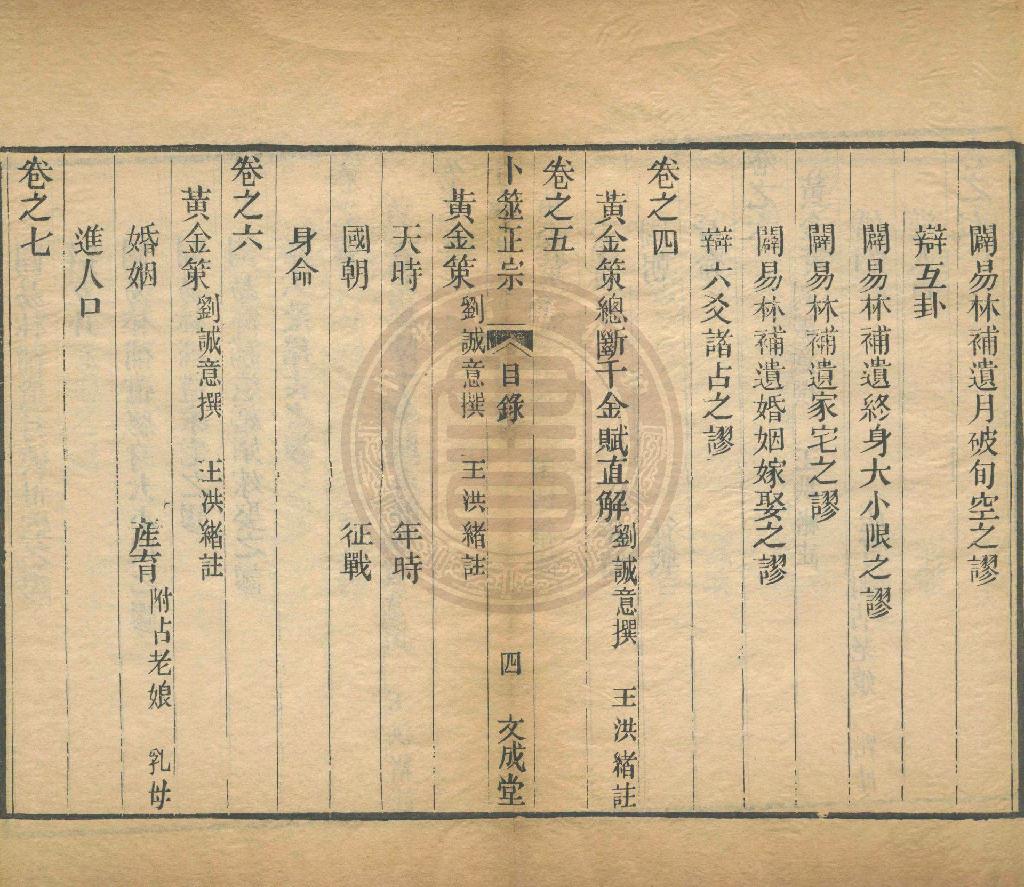 闢易林補遺月破旬空之謬
辯互卦
闢易林補遺終身大小限之謬
闢易林補遺家宅之謬
闢易林補遺婚姻嫁娶之謬
辯六爻諸占之謬
卷之四
黃金策總斷千金賦直解 劉誠意撰 王洪緒註
卷之五
卜筮正宗 目錄 四 文成堂
黃金策 劉誠意撰 王洪緒註
天時 年時
國朝 征戰
身命
卷之六
黃金策 劉誠意撰 王洪緒註
婚姻 產育 附占老娘 乳母
進人口
卷之七